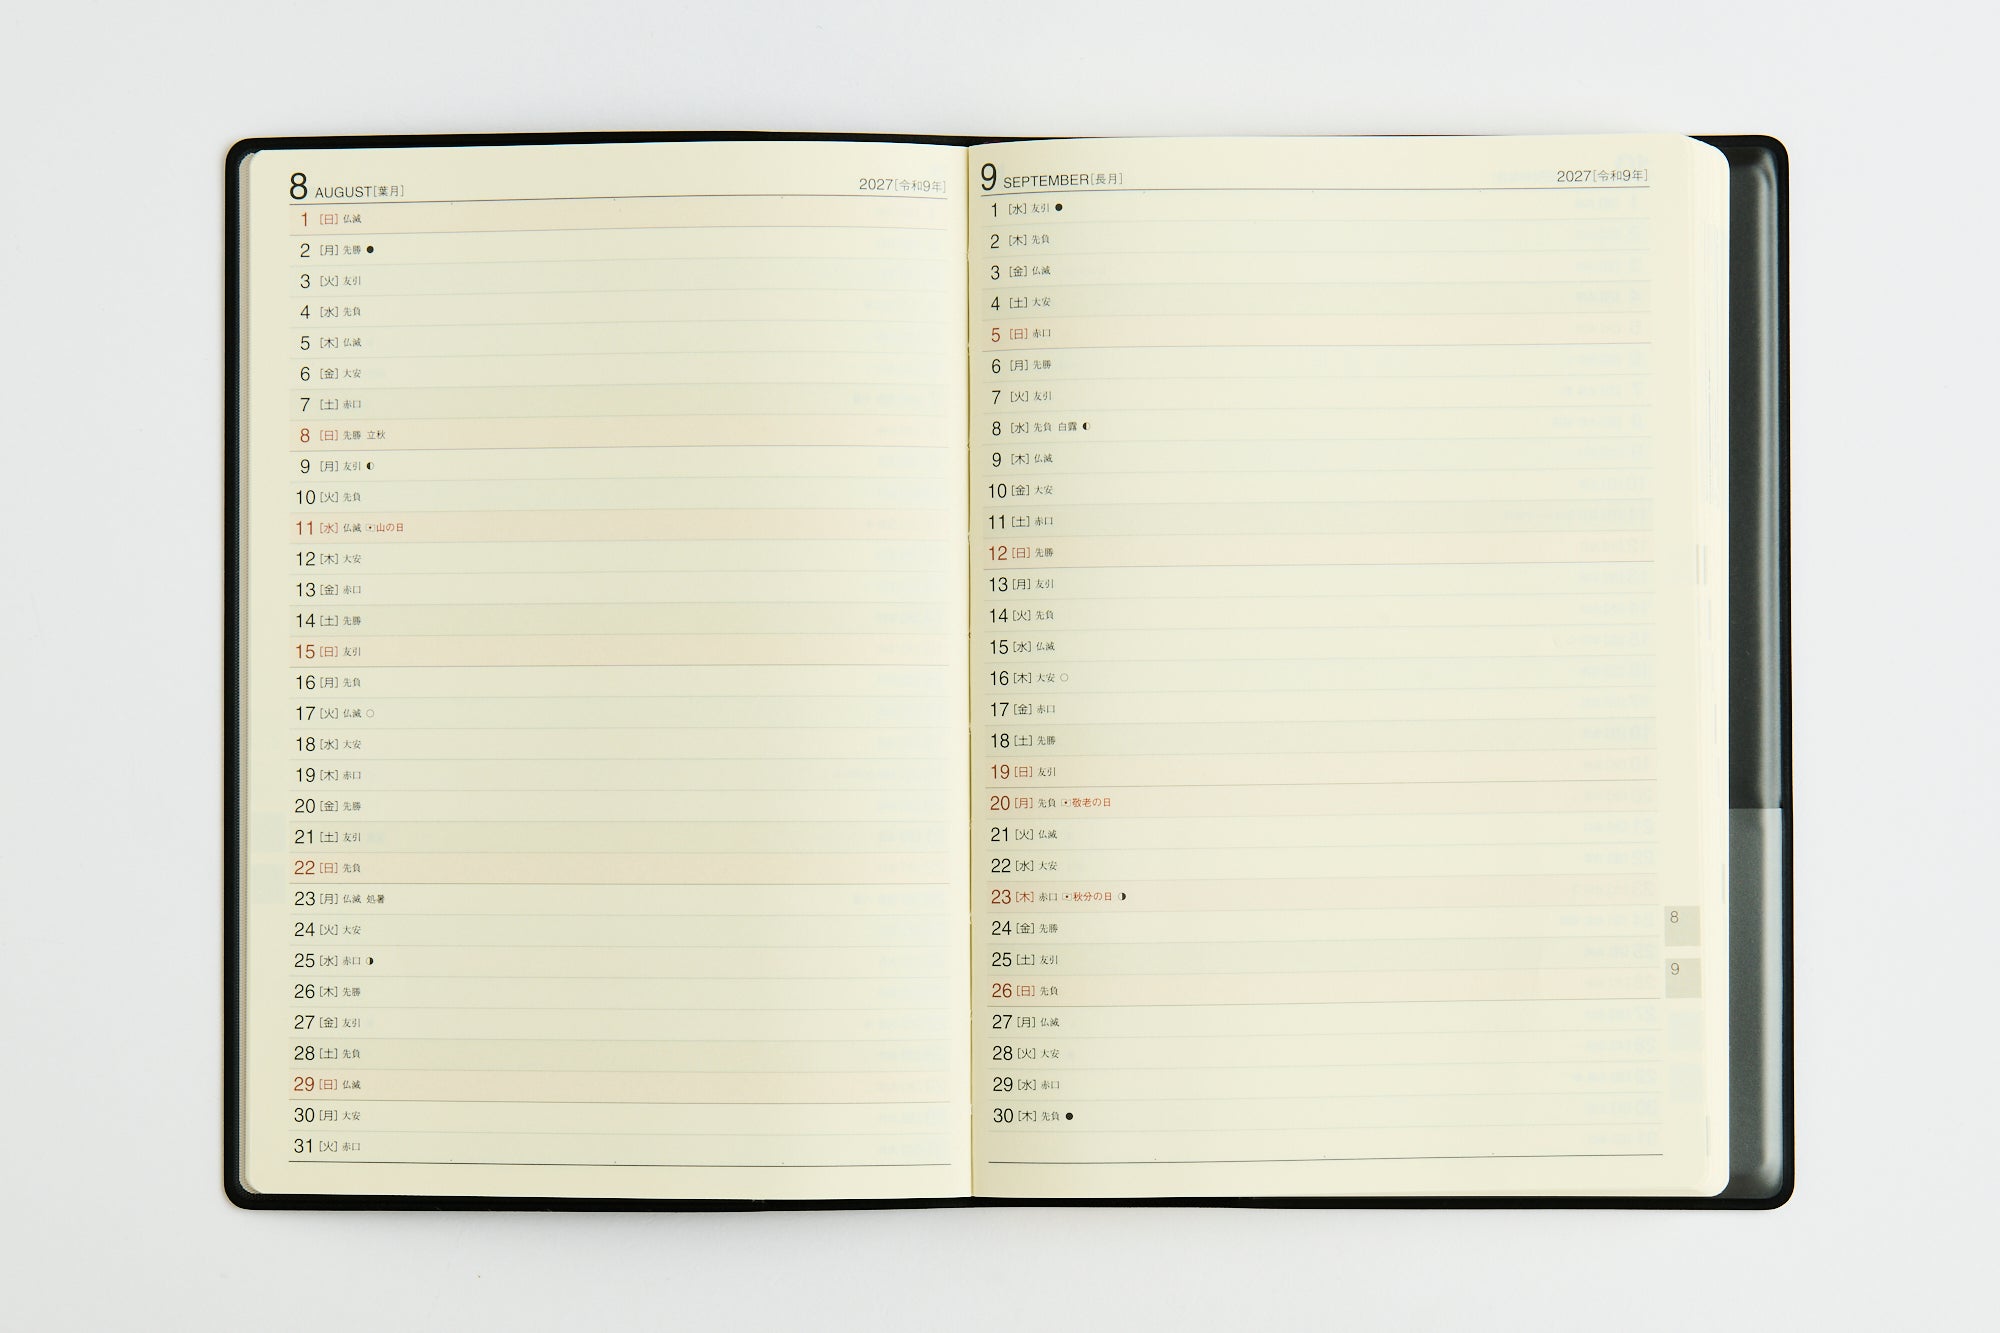 8 AUGUST[葉月] 2027[令和9年]
1 [日] 仏滅
2 [月] 先勝 ●
3 [火] 友引
4 [水] 先負
5 [木] 仏滅
6 [金] 大安
7 [土] 赤口
8 [日] 先勝 立秋
9 [月] 友引 ◐
10 [火] 先負
11 [水] 仏滅 🇯🇵山の日
12 [木] 大安
13 [金] 赤口
14 [土] 先勝
15 [日] 友引
16 [月] 先負
17 [火] 仏滅 ○
18 [水] 大安
19 [木] 赤口
20 [金] 先勝
21 [土] 友引
22 [日] 先負
23 [月] 仏滅 処暑
24 [火] 大安
25 [水] 赤口 ◑
26 [木] 先勝
27 [金] 友引
28 [土] 先負
29 [日] 仏滅
30 [月] 大安
31 [火] 赤口
9 SEPTEMBER[長月] 2027[令和9年]
1 [水] 友引 ●
2 [木] 先負
3 [金] 仏滅
4 [土] 大安
5 [日] 赤口
6 [月] 先勝
7 [火] 友引
8 [水] 先負 白露 ◐
9 [木] 仏滅
10 [金] 大安
11 [土] 赤口
12 [日] 先勝
13 [月] 友引
14 [火] 先負
15 [水] 仏滅
16 [木] 大安 ○
17 [金] 赤口
18 [土] 先勝
19 [日] 友引
20 [月] 先負 🇯🇵敬老の日
21 [火] 仏滅
22 [水] 大安
23 [木] 赤口 🇯🇵秋分の日 ◑
24 [金] 先勝
25 [土] 友引
26 [日] 先負
27 [月] 仏滅
28 [火] 大安
29 [水] 赤口
30 [木] 先負 ●
8
9